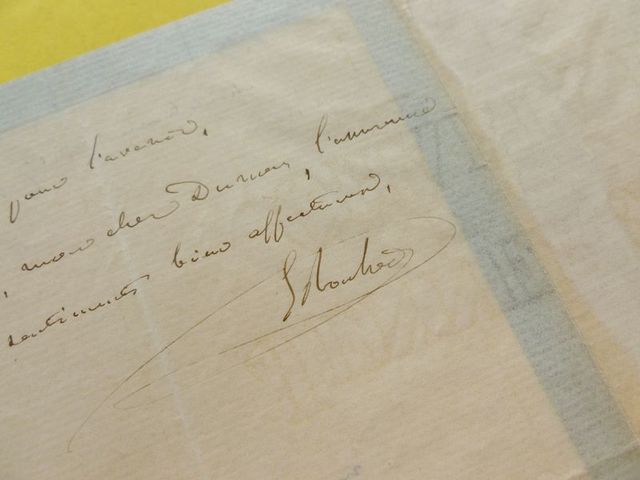 pour l'avenir,
, mon cher Dumon, l'assurance
sentiments bien affectueux,
E Rouher